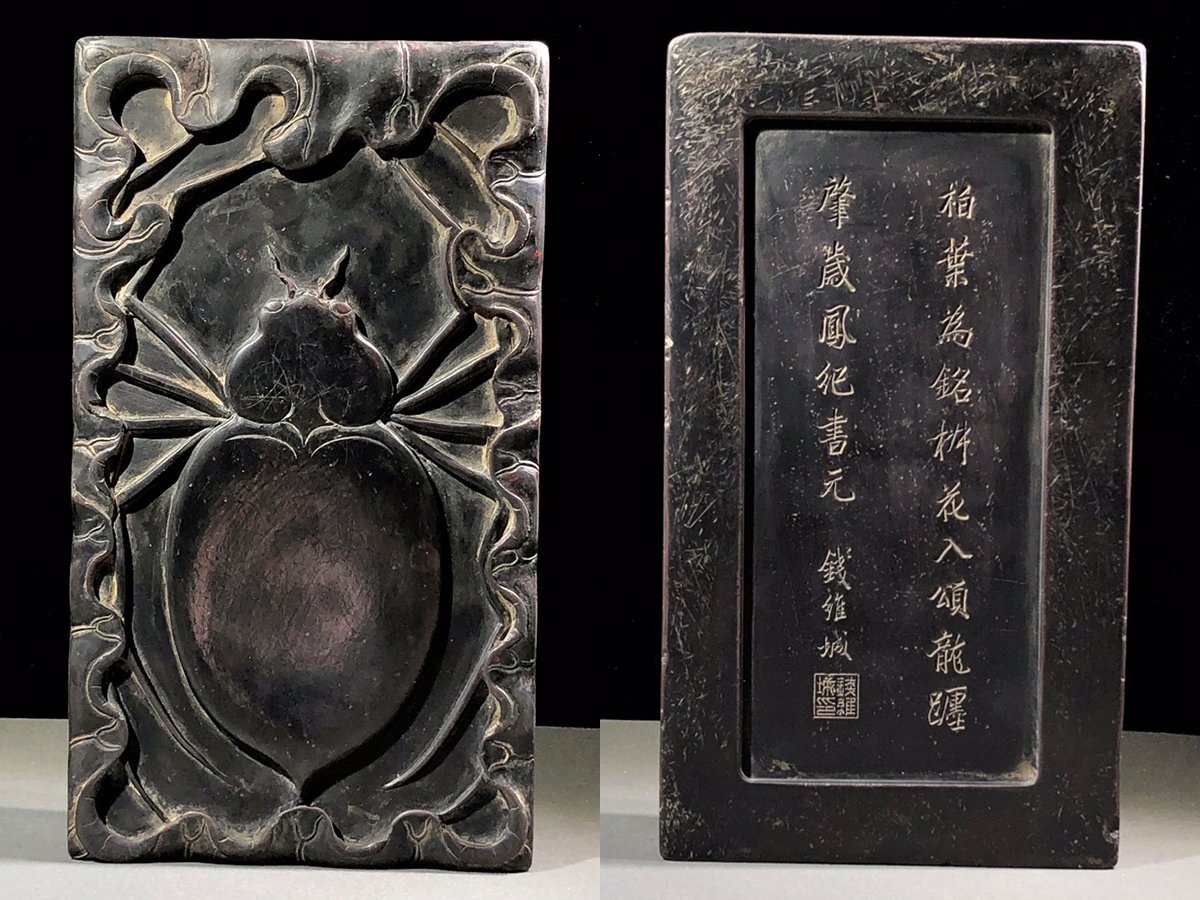 柏葉為銘椒花入頌龍躔
肇歲鳳紀書元 錢維城
錢維城印